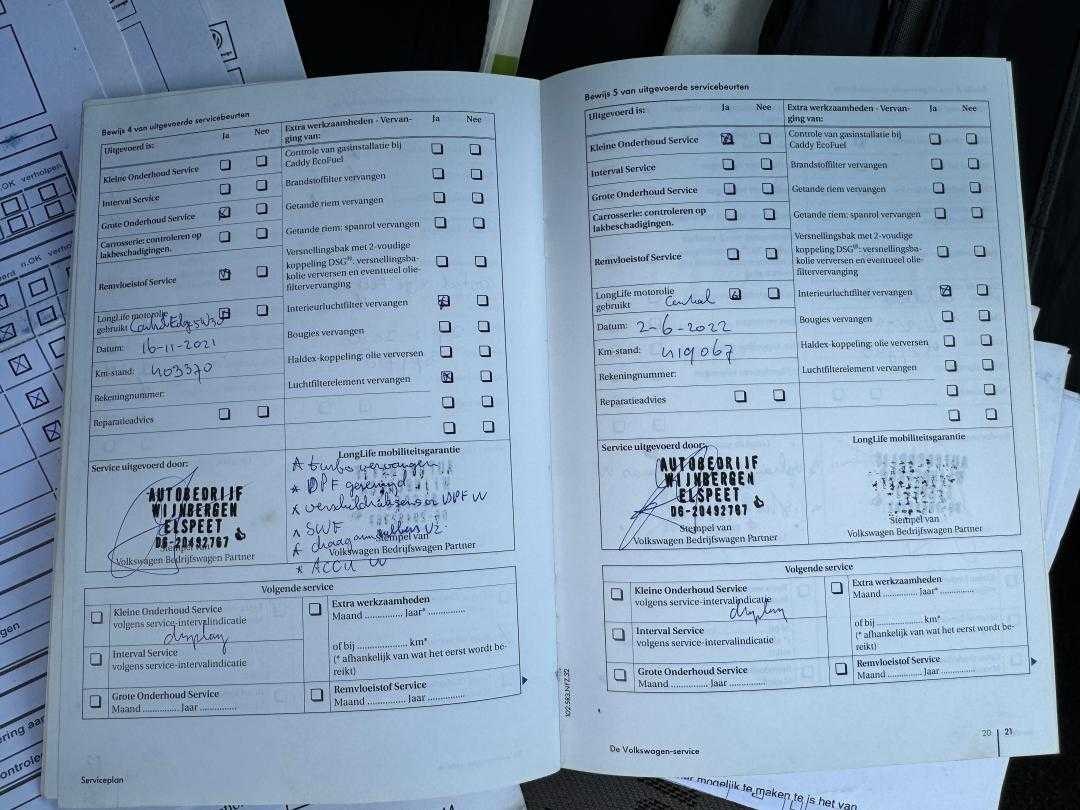 Bewijs 4 van uitgevoerde servicebeurten
Uitgevoerd is:
Ja
Nee
Extra werkzaamheden - Vervanging van:
Ja
Nee
Kleine Onderhoud Service
Interval Service
Grote Onderhoud Service
Carrosserie: controleren op
lakbeschadigingen.
Remvloeistof Service
LongLife motorolie
gebruikt
Datum: 16-11-2021
Km-stand: 403370
Rekeningnummer:
Reparatieadvies
Controle van gasinstallatie bij
Caddy EcoFuel
Brandstoffilter vervangen
Getande riem vervangen
Getande riem: spanrol vervangen
Versnellingsbak met 2-voudige
koppeling DSG®: versnellingsba-
kolie verversen en eventueel olie-
filtervervanging
Interieurluchtfilter vervangen
Bougies vervangen
Haldex-koppeling: olie verversen
Luchtfilterelement vervangen
Service uitgevoerd door:
AUTOBEDRIJF
WIJNBERGEN
ELSPEET
06-20492767
Stempel van
Volkswagen Bedrijfswagen Partner
LongLife mobiliteitsgarantie
* turbo vervangen
* DPF gereinigd
* verschildruksensor DPF W
* SWF
* draagarmrubbers VZ
* ACCU W
Stempel van
Volkswagen Bedrijfswagen Partner
Volgende service
Kleine Onderhoud Service
volgens service-intervalindicatie
display
Interval Service
volgens service-intervalindicatie
Grote Onderhoud Service
Maand .............. Jaar ..............
Extra werkzaamheden
Maand .............. Jaar* ..............
of bij ................. km*
(* afhankelijk van wat het eerst wordt be-
reikt)
Remvloeistof Service
Maand .............. Jaar ..............
Serviceplan
Bewijs 5 van uitgevoerde servicebeurten
Uitgevoerd is:
Ja
Nee
Extra werkzaamheden - Vervan-
ging van:
Ja
Nee
Kleine Onderhoud Service
Interval Service
Grote Onderhoud Service
Carrosserie: controleren op
lakbeschadigingen.
Remvloeistof Service
LongLife motorolie
gebruikt
Datum: 2-6-2022
Km-stand: 419067
Rekeningnummer:
Reparatieadvies
Controle van gasinstallatie bij
Caddy EcoFuel
Brandstoffilter vervangen
Getande riem vervangen
Getande riem: spanrol vervangen
Versnellingsbak met 2-voudige
koppeling DSG®: versnellingsba-
kolie verversen en eventueel olie-
filtervervanging
Interieurluchtfilter vervangen
Bougies vervangen
Haldex-koppeling: olie verversen
Luchtfilterelement vervangen
Service uitgevoerd door:
AUTOBEDRIJF
WIJNBERGEN
ELSPEET
06-20492767
Stempel van
Volkswagen Bedrijfswagen Partner
LongLife mobiliteitsgarantie
Stempel van
Volkswagen Bedrijfswagen Partner
Volgende service
Kleine Onderhoud Service
volgens service-intervalindicatie
display
Interval Service
volgens service-intervalindicatie
Grote Onderhoud Service
Maand .............. Jaar ..............
Extra werkzaamheden
Maand .............. Jaar* ..............
of bij ................. km*
(* afhankelijk van wat het eerst wordt be-
reikt)
Remvloeistof Service
Maand .............. Jaar ..............
De Volkswagen-service
20 | 21
mogelijk te maken te is het van